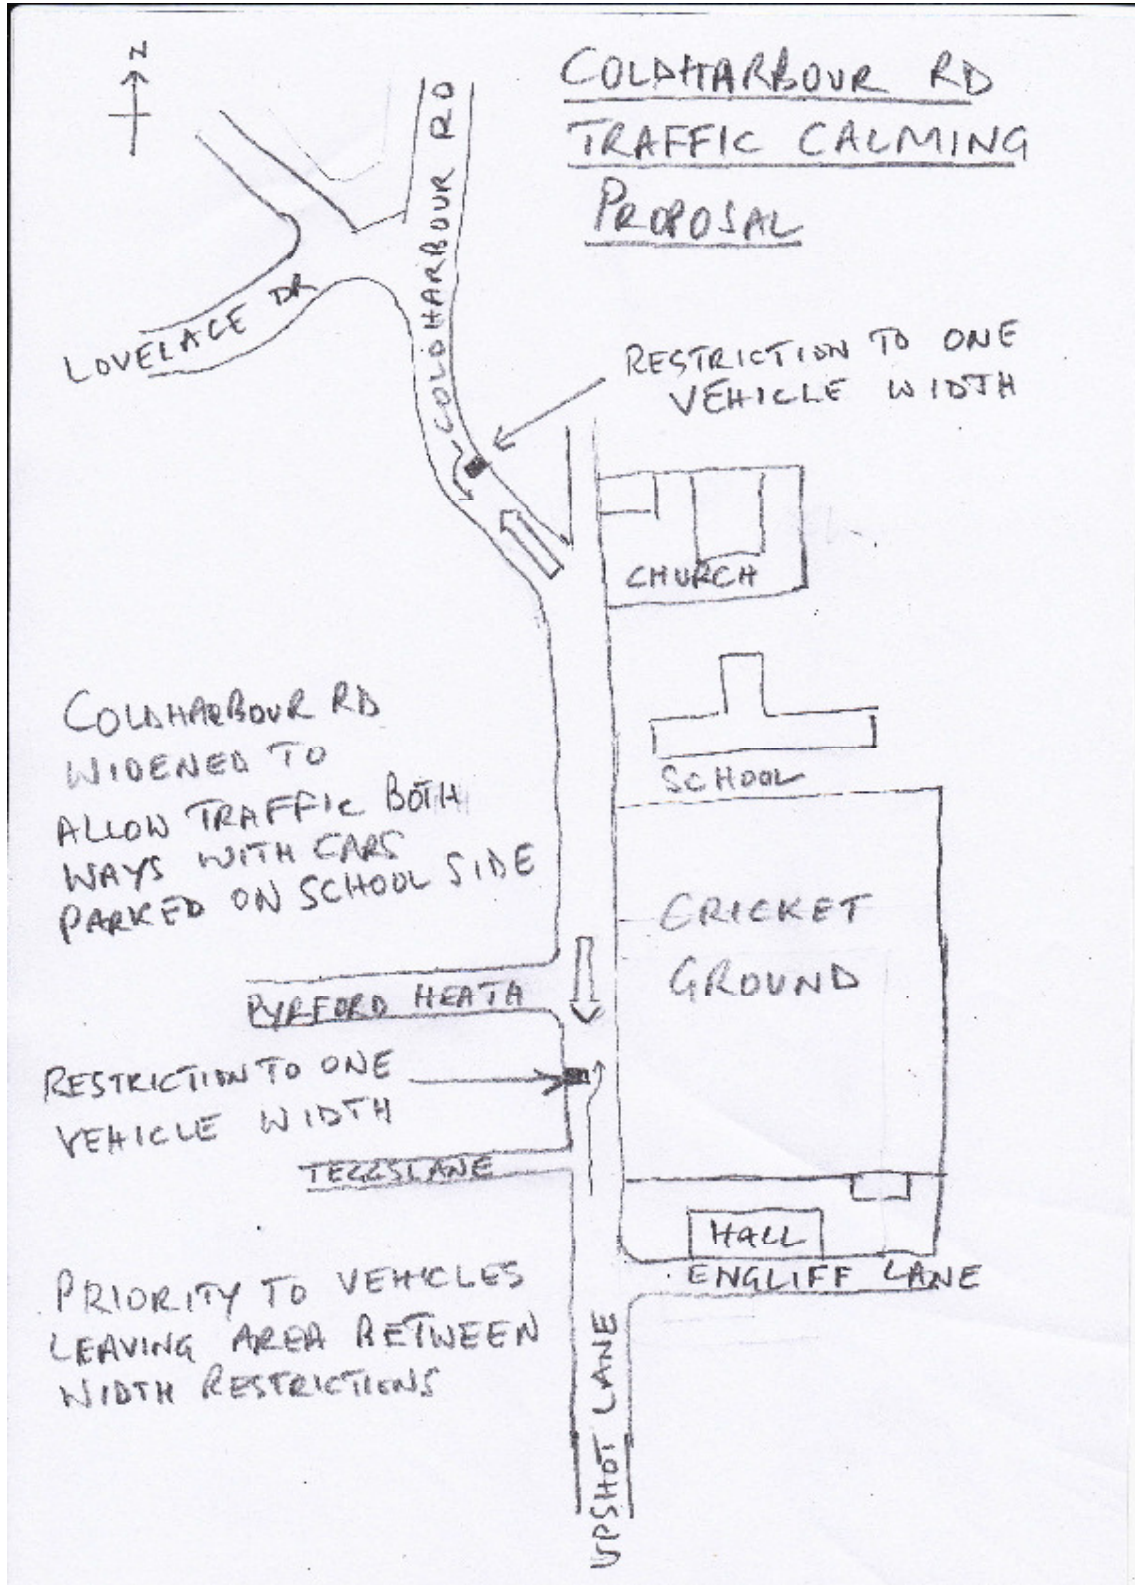 N
COLDHARBOUR RD
TRAFFIC CALMING
PROPOSAL
COLDHARBOUR RD
LOVELACE DR
RESTRICTION TO ONE
VEHICLE WIDTH
CHURCH
SCHOOL
COLDHARBOUR RD
WIDENED TO
ALLOW TRAFFIC BOTH
WAYS WITH CARS
PARKED ON SCHOOL SIDE
CRICKET
GROUND
PYRFORD HEATH
RESTRICTION TO ONE
VEHICLE WIDTH
TEGGSLANE
HALL
ENGLIFF LANE
PRIORITY TO VEHICLES
LEAVING AREA BETWEEN
WIDTH RESTRICTIONS
UPSHOT LANE